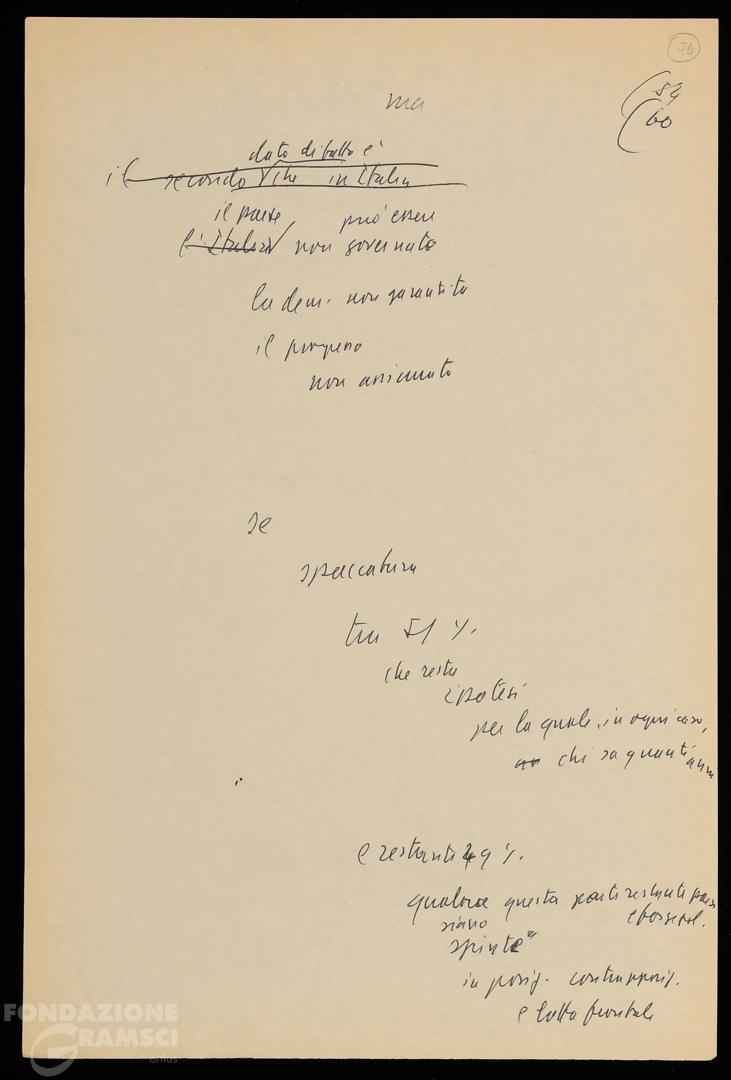 74
54
60
ma
dato di fatto è
il secondo che in Italia
il paese può essere
l'Italia non governato
la dem. non garantita
il progresso
non assicurato
se
spaccatura
tra 51 %.
che resta
ipotesi
per la quale, in ogni caso,
chi sa quanti anni
e restante 49 %.
qualora questa parte restante paese
siano e forze pol.
spinte
in posiz. contrapposiz.
e lotta frontale
FONDAZIONE
GRAMSCI
onlus